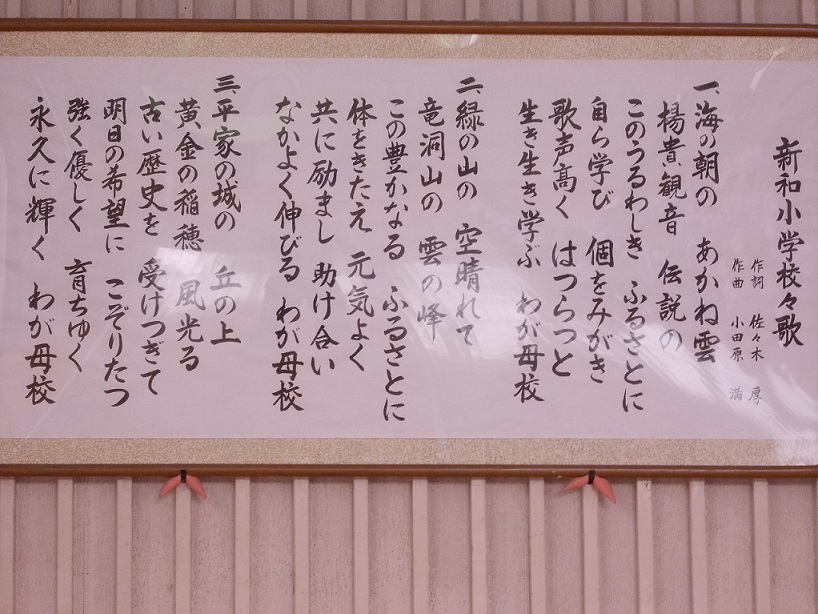 新和小学校々歌
作詞 佐々木 厚
作曲 小田原 満
一、海の朝の あかね雲
楊貴観音 伝説の
このうるわしき ふるさとに
自ら学び 個をみがき
歌声高く はつらつと
生き生き学ぶ わが母校
二、緑の山の 空晴れて
竜洞山の 雲の峰
この豊かなる ふるさとに
体をきたえ 元気よく
共に励まし 助け合い
なかよく伸びる わが母校
三、平家の城の 丘の上
黄金の稲穂 風光る
古い歴史を 受けつぎて
明日の希望に こぞりたつ
強く優しく 育ちゆく
永久に輝く わが母校